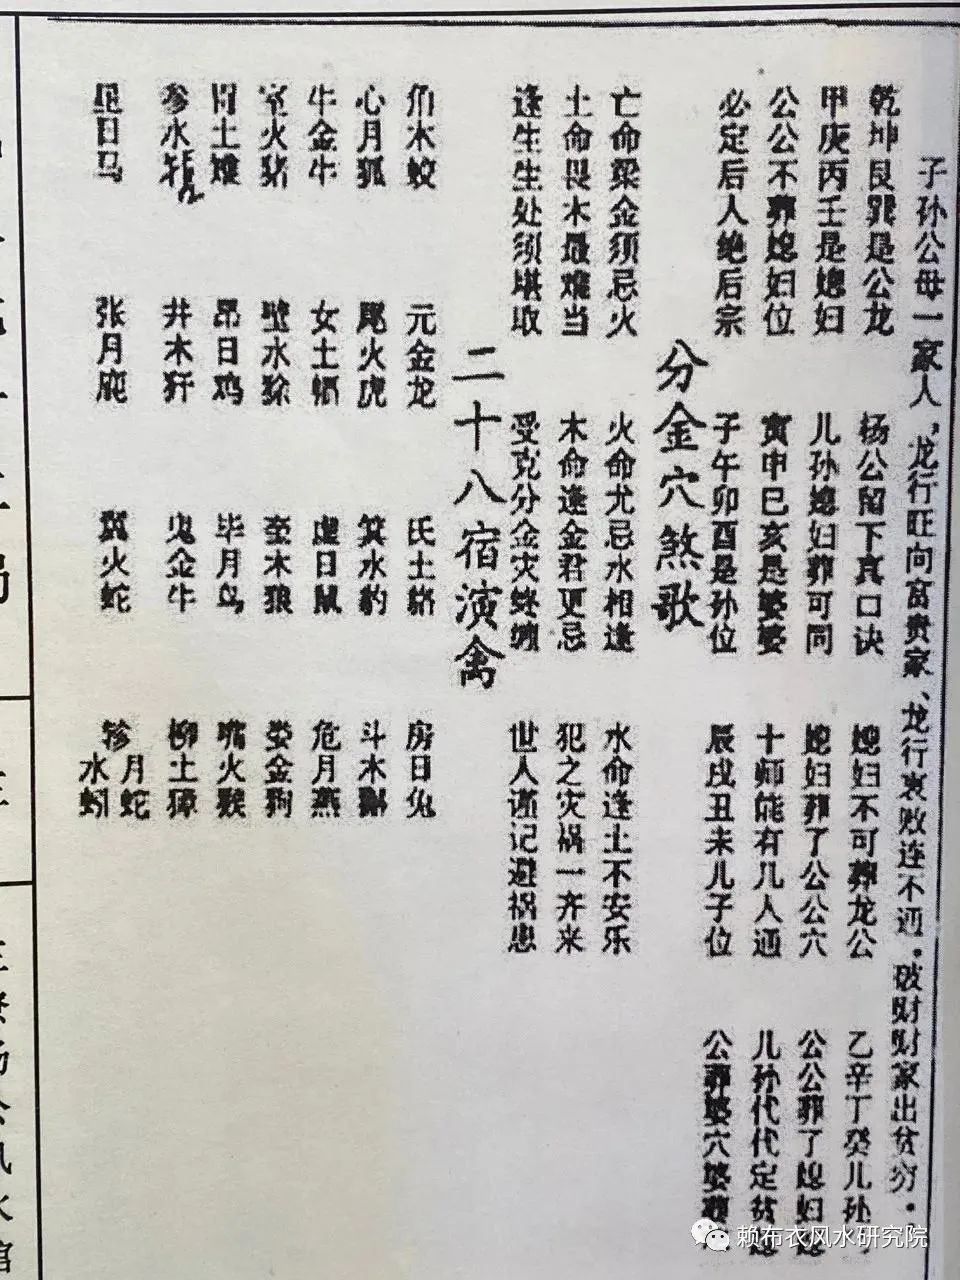 子孙公母一家人,龙行旺向富贵家、龙行衰败连不通.破财财家出贫穷.
乾坤艮巽是公龙 杨公留下真口诀 媳妇不可葬龙公 乙辛丁癸儿孙
甲庚丙壬是媳妇 儿孙媳妇葬可同 媳妇葬了公公穴 公公葬了媳妇
公公不葬媳妇位 寅申巳亥是婆婆 十师能有几人通 儿孙代代定贫
必定后人绝后宗 子午卯酉是孙位 辰戌丑未儿子位 公葬婆穴婆
分金穴煞歌
亡命梁金须忌火 火命尤忌水相逢 水命逢土不安乐
土命畏木最难当 木命逢金君更忌 犯之灾祸一齐来
逢生生处须堪取 受克分金灾终缠 世人谨记避祸患
二十八宿演禽
角木蛟 元金龙 氐土貉 房日兔
心月狐 尾火虎 箕水豹 斗木獬
牛金牛 女土蝠 虚日鼠 危月燕
室火猪 壁水狳 奎木狼 娄金狗
胃土雉 昂日鸡 毕月乌 嘴火猴
参水猿 井木犴 鬼金牛 柳土獐
星日马 张月鹿 翼火蛇 轸月蛇水蚓
赖布衣风水研究院